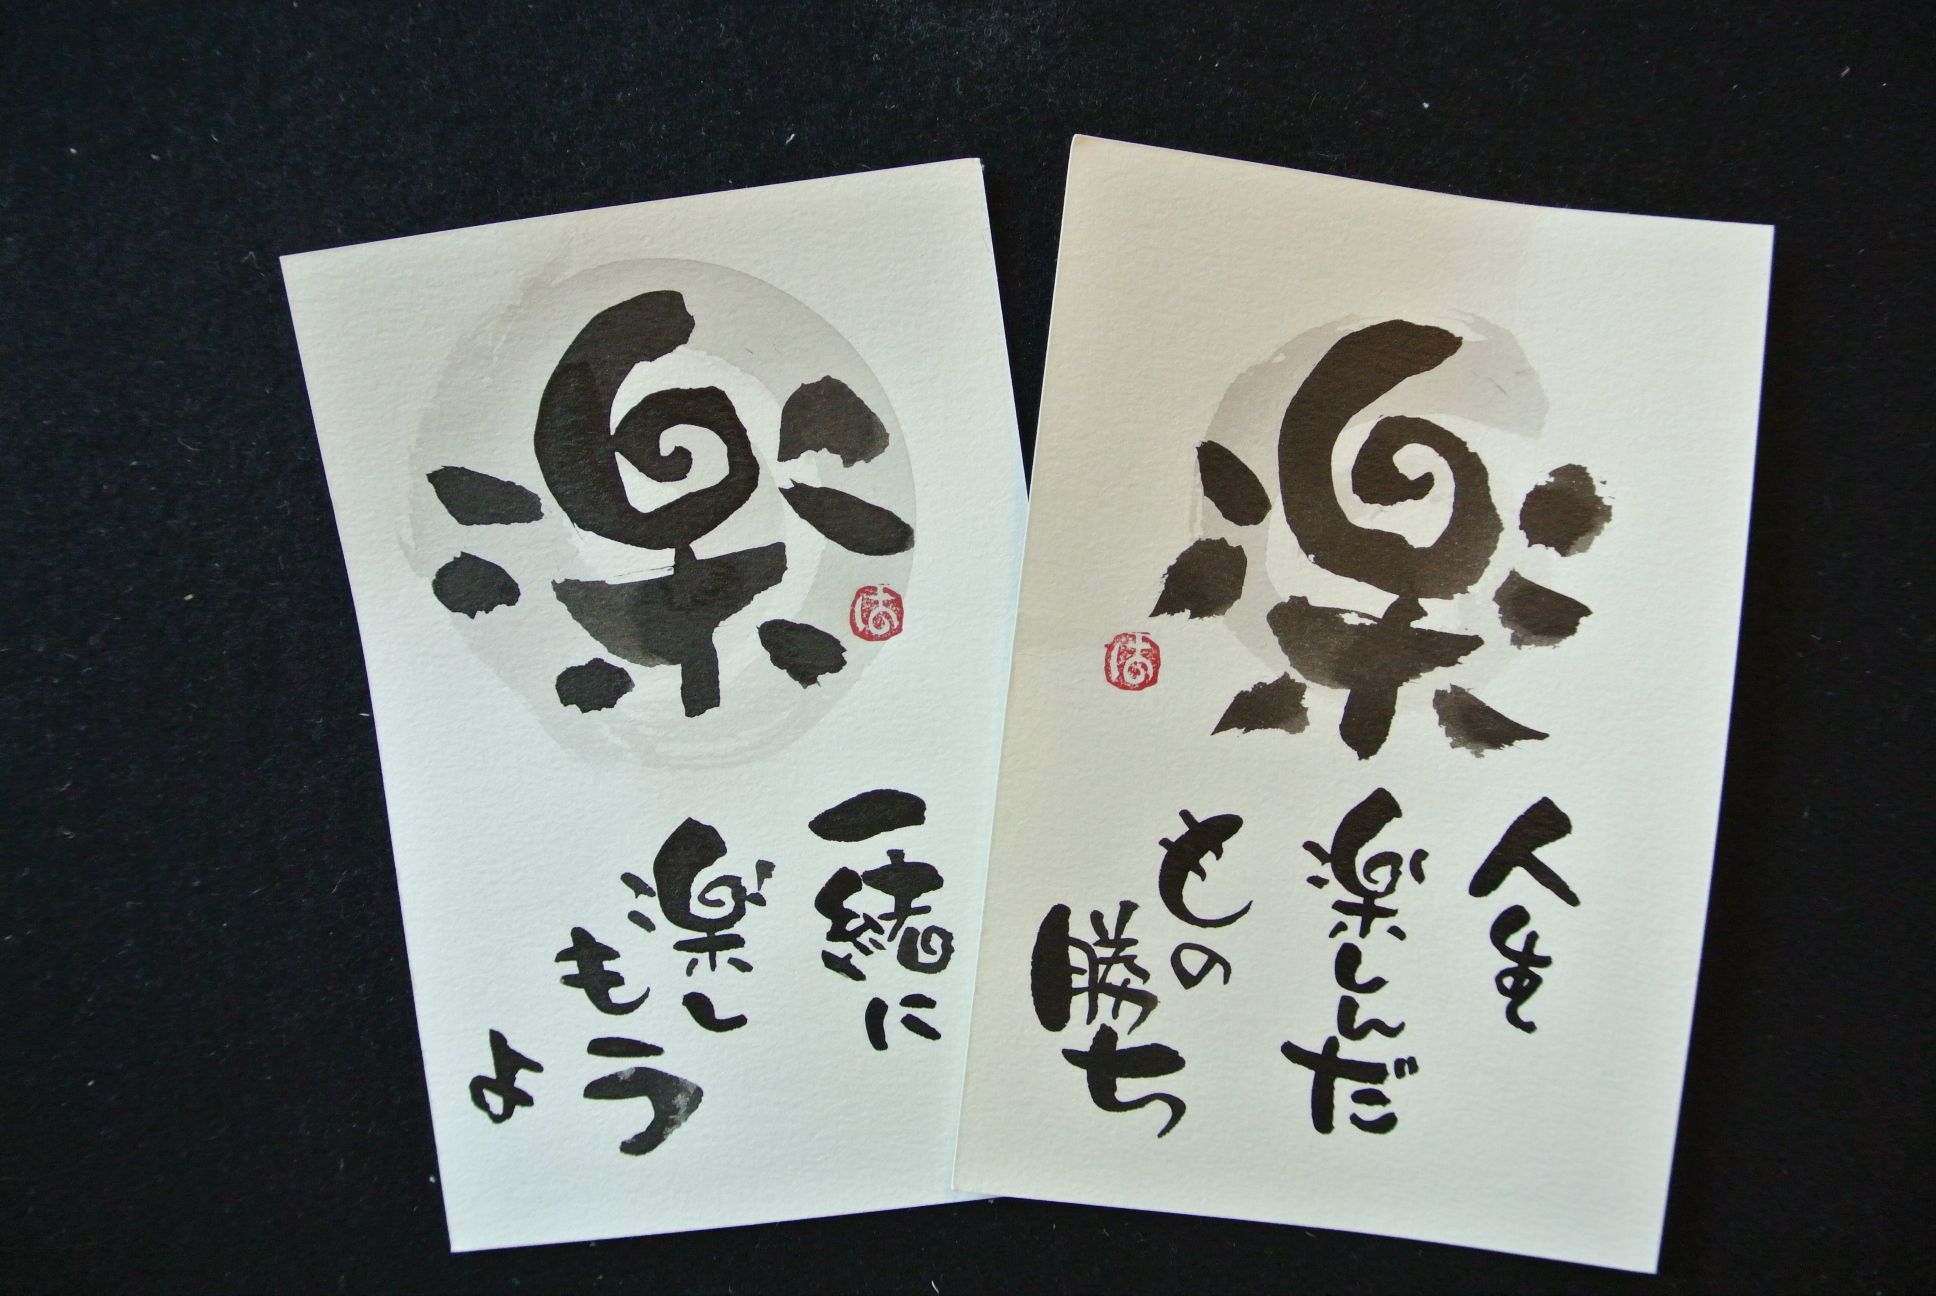 楽
は
一緒に
楽し
もう
よ
楽
は
人生
楽しんだ
もの
勝ち